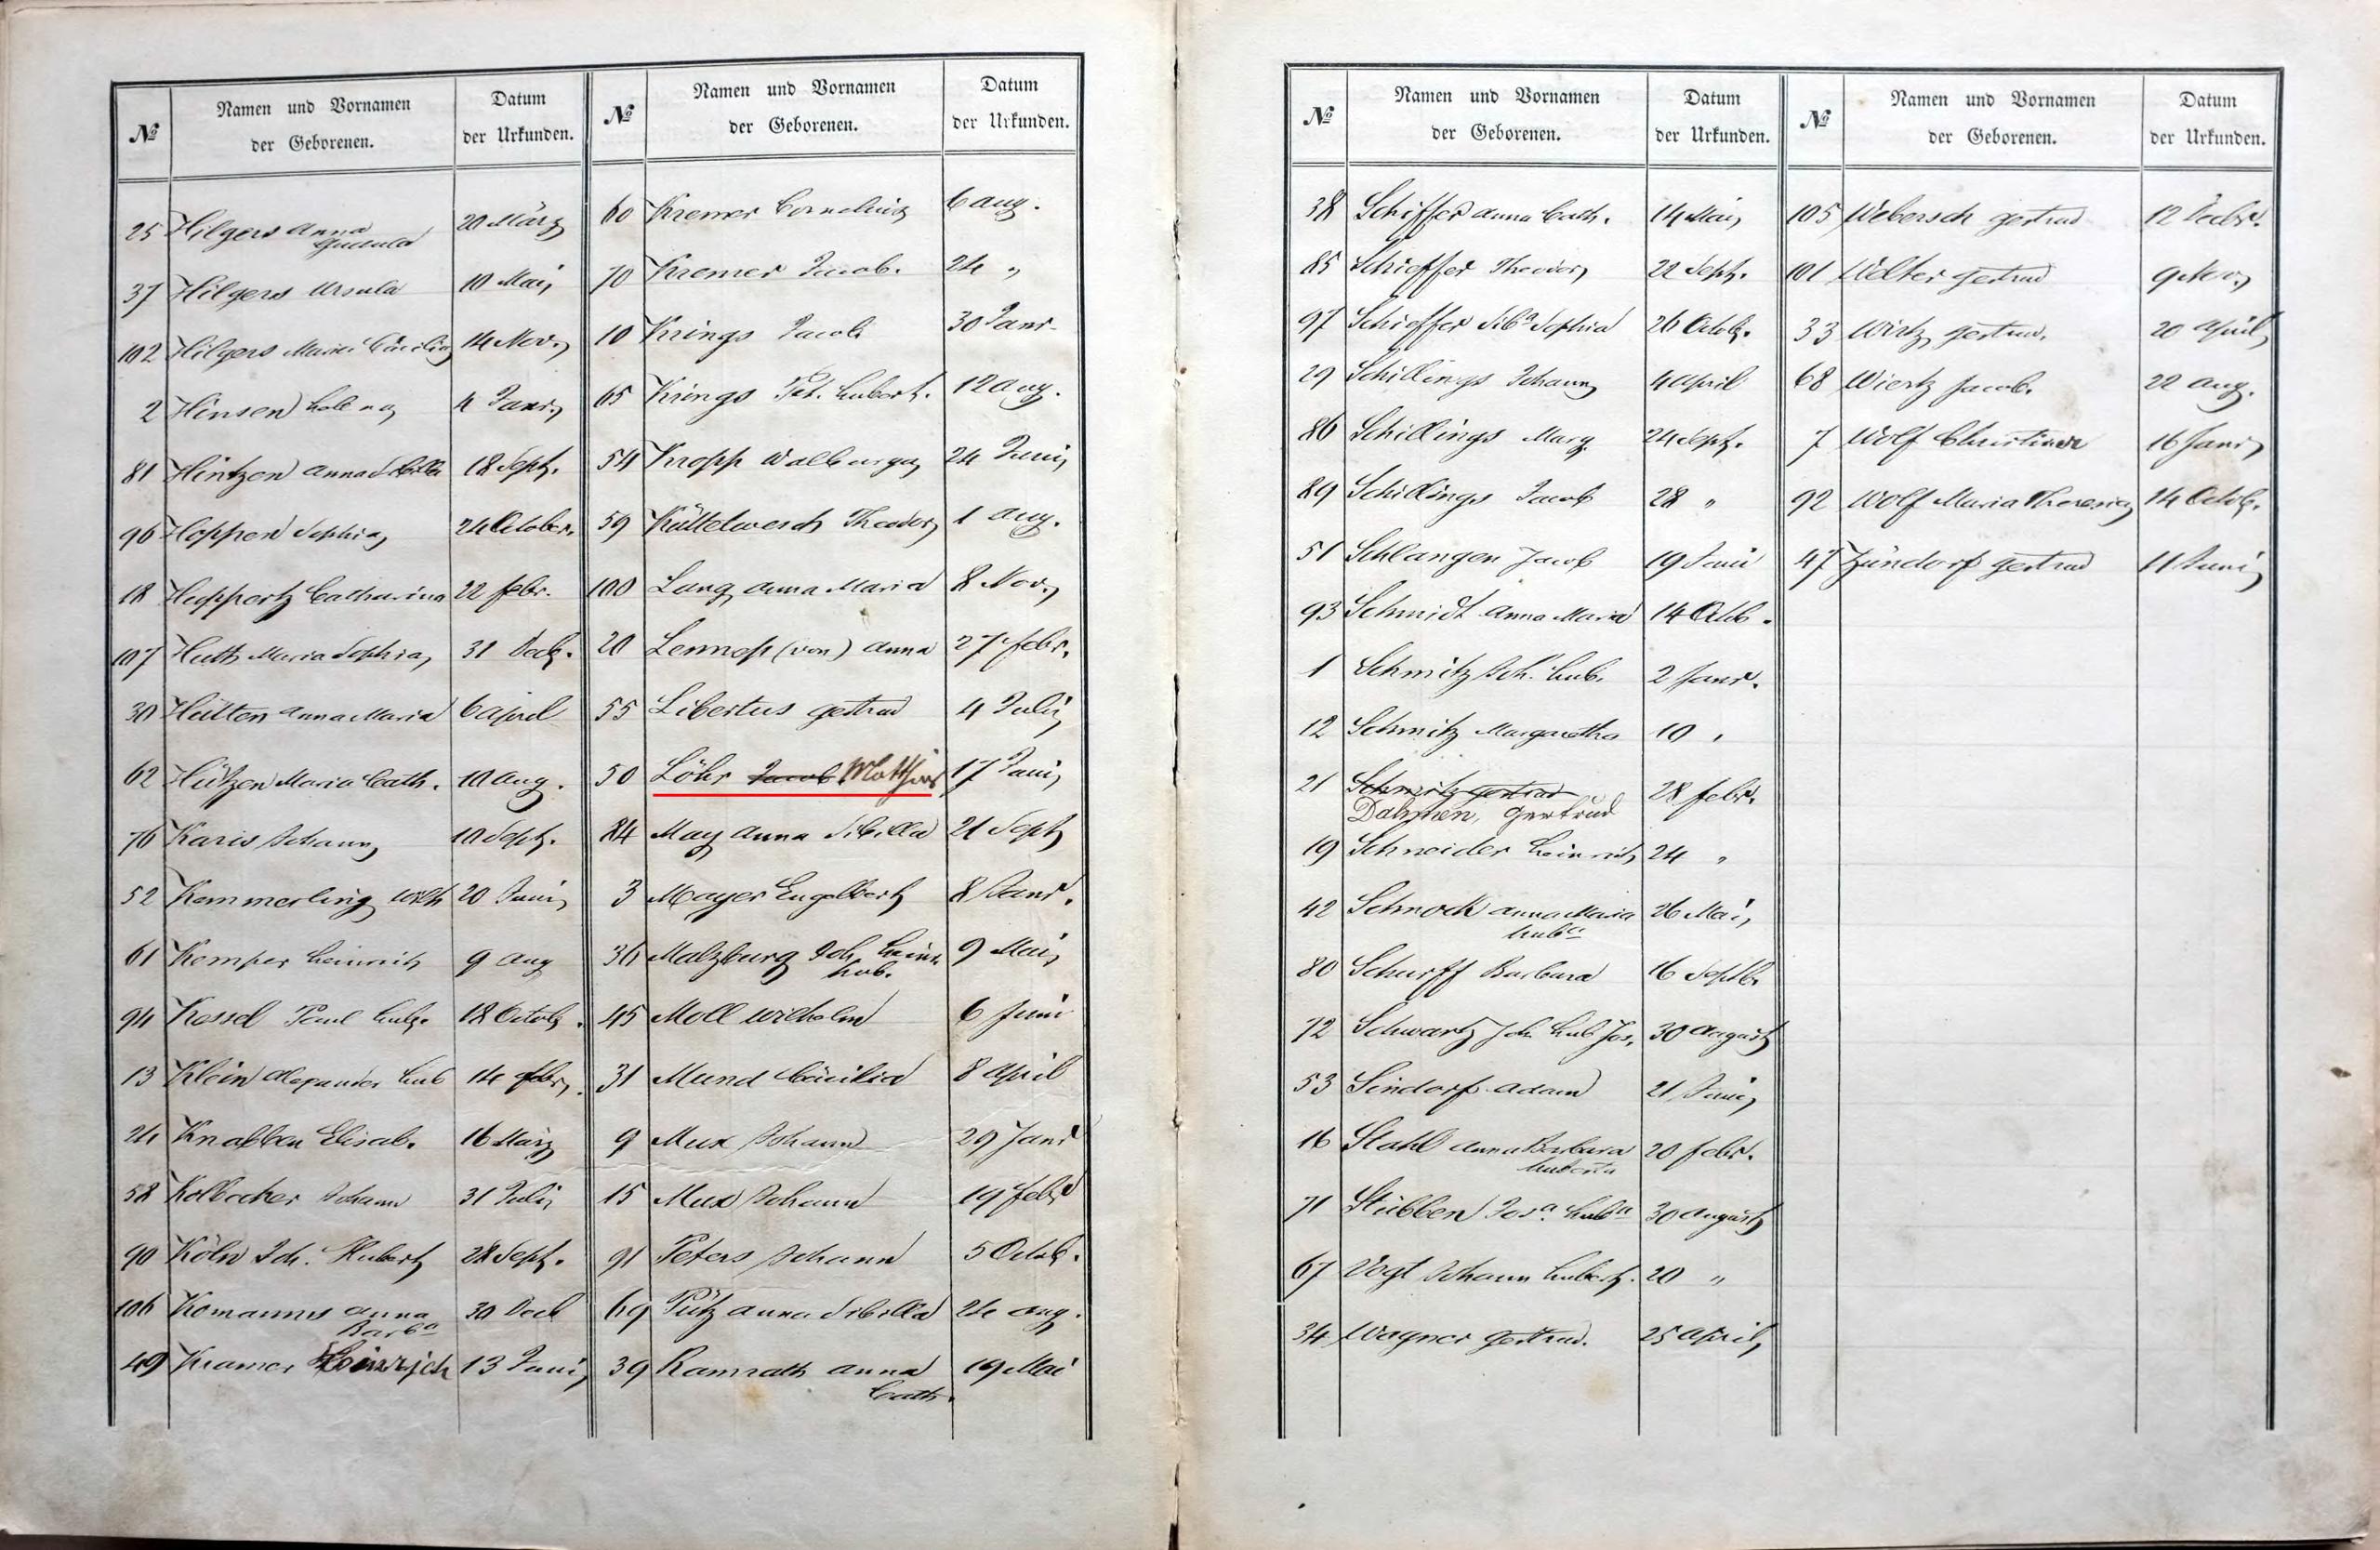 № Namen und Vornamen der Geborenen. Datum der Urkunden.
25 Hilgers Anna Gudula 20 März
37 Hilgers Ursula 10 Mai
102 Hilgers Maria Cäcilia 14 Nov.
2 Hinsen Helena 4 Janr.
81 Hintzen Anna Sibilla 18 Sept.
96 Hoppen Sophia 24 October.
18 Huppertz Catharina 22 febr.
107 Huth Maria Sophia 31 Decb.
30 Hütten Anna Maria 6 April
62 Hützen Maria Cath. 10 Aug.
76 Karis Johann 10 Sept.
52 Kemmerling Wilh 20 Juni
61 Kemper Heinrich 9 Aug
94 Kessel Paul Hub. 18 Octob.
13 Klein Alexander Hub 14 febr.
24 Knabben Elisab. 16 März
58 Kolbecher Johann 31 Juli
90 Köln Joh. Hubert 28 Sept.
106 Komanns Anna Barbª 30 Decb
49 Kramer Heinrich 13 Juni
№ Namen und Vornamen der Geborenen. Datum der Urkunden.
60 Kremer Cornelius 6 Aug.
70 Kremer Jacob. 24 "
10 Krings Jacob 30 Janr.
65 Krings Pet. Hubert. 12 Aug.
54 Kropp Walburga 24 Juni
59 Küttelwesch Theodor 1 Aug.
100 Lang Anna Maria 8 Nov.
20 Lennep (von) Anna 27 febr.
55 Libertus Gertrud 4 Juli
50 Löhr Jacob Matthias 17 Juni
84 May Anna Sibilla 21 Sept
3 Mayer Engelbert 8 Janr.
36 Malzburg Joh. Heinr. Hub. 9 Mai
45 Moll Wilhelm 6 Juni
31 Mund Cäcilia 8 April
9 Mux Johann 29 Janr
15 Mux Johann 19 febr
91 Peters Johann 5 Octob.
69 Pütz Anna Sibilla 24 Aug.
39 Ramrath Anna Cath. 19 Mai
№ Namen und Vornamen der Geborenen. Datum der Urkunden.
38 Schiffer Anna Cath. 14 Mai
85 Schieffer Theodor 22 Sept.
97 Schieffer Sibª Sophia 26 Octob.
29 Schillings Johann 4 April
86 Schillings Marg. 24 Sept.
89 Schillings Jacob 28 "
51 Schlangen Jacob 19 Juni
93 Schmidt Anna Maria 14 Octb.
1 Schmitz Joh. Hub. 2 Janr.
12 Schmitz Margaretha 10 "
21 Schmitz Gertrud 28 febr.
Dahmen, Gertrud
19 Schneider Heinrich 24 "
42 Schnock Anna Maria Hubª 26 Mai
80 Schurff Barbara 16 Septb.
72 Schwartz Joh Hub Jos. 30 August
53 Sindorf Adam 21 Juni
16 Stahl Anna Barbara Huberta 20 febr.
71 Stübben Josª. Hubª 30 August
67 Vogt Johann Hubert. 20 "
34 Wagner Gertrud. 25 April
№ Namen und Vornamen der Geborenen. Datum der Urkunden.
105 Webersch Gertrud 12 Decbr.
101 Welter Gertrud 9 Nov.
33 Wirtz Gertrud. 20 April
68 Wiertz Jacob. 22 Aug.
7 Wolf Christina 16 Janr
92 Wolf Maria Theresia 14 Octob.
47 Zündorf Gertrud 11 Juni